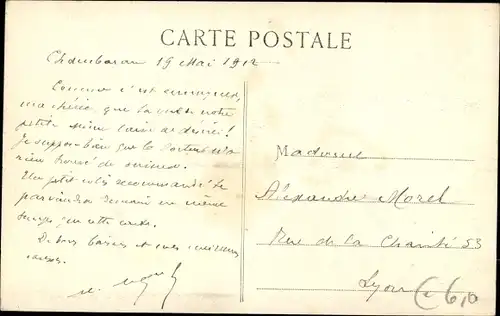 CARTE POSTALE
Chambaran 19 Mai 1912
Comme c'est ennuyeux,
ma chérie que la
petite
Je suppose bien que le Docteur n'a
rien trouvé de sérieux.
Un petit colis recommandé te
parviendra demain en même
temps que cette carte.
De bons baisers et mes meilleures
Madame
Alexandre Morel
Rue de la Charité 53
Lyon
C 6,0